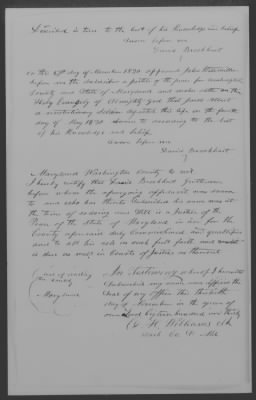 is true to the best of his knowledge and belief
Sworn before me
David Brookhart
On the day of November 1830 appeared John
before me the subscriber a Justice of the peace for Washington
County and State of Maryland and makes oath on the
Holy Evangely of Almighty God that
a revolutionary Soldier departed this life on the fourth
day of May 1830 above to according to the best
of his Knowledge and belief
Sworn before me
David Brookhart
Maryland Washington County to wit
I hereby certify that David Brookhart Gentleman
before whom the aforegoing affidavit was sworn
to and who has thereto Subscribed his name was at
the time of so doing and still is a Justice of the
Peace of the State of Maryland in and for the
County aforesaid duly Commissioned and qualified
and to all his acts as such full faith and credit
is due as well in Courts of Justice as thereout
In Testimony whereof I hereunto
Subscribed my name and affixed the
Seal of my office this thirtieth
day of November in the year of
our Lord Eighteen hundred and thirty
O. H. Williams Clk
Wash Co Ct Md
Seal of
County
Maryland